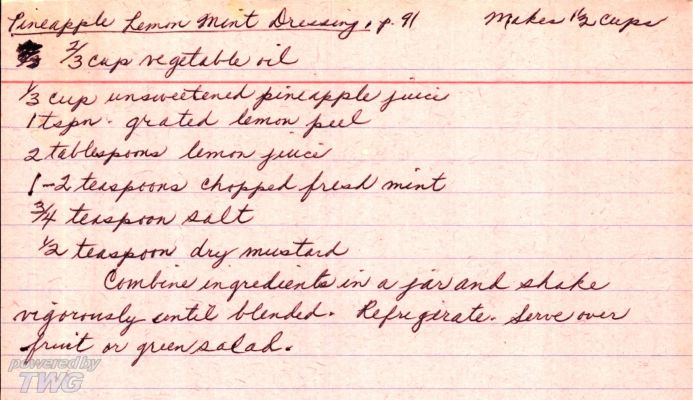 Pineapple Lemon Mint Dressing, p. 91 Makes 1 1/2 cups
2/3 cup vegetable oil
1/3 cup unsweetened pineapple juice
1 tspn. grated lemon peel
2 tablespoons lemon juice
1-2 teaspoons chopped fresh mint
3/4 teaspoon salt
1/2 teaspoon dry mustard
Combine ingredients in a jar and shake
vigorously until blended. Refrigerate. Serve over
fruit or green salad.
powered by
TWG